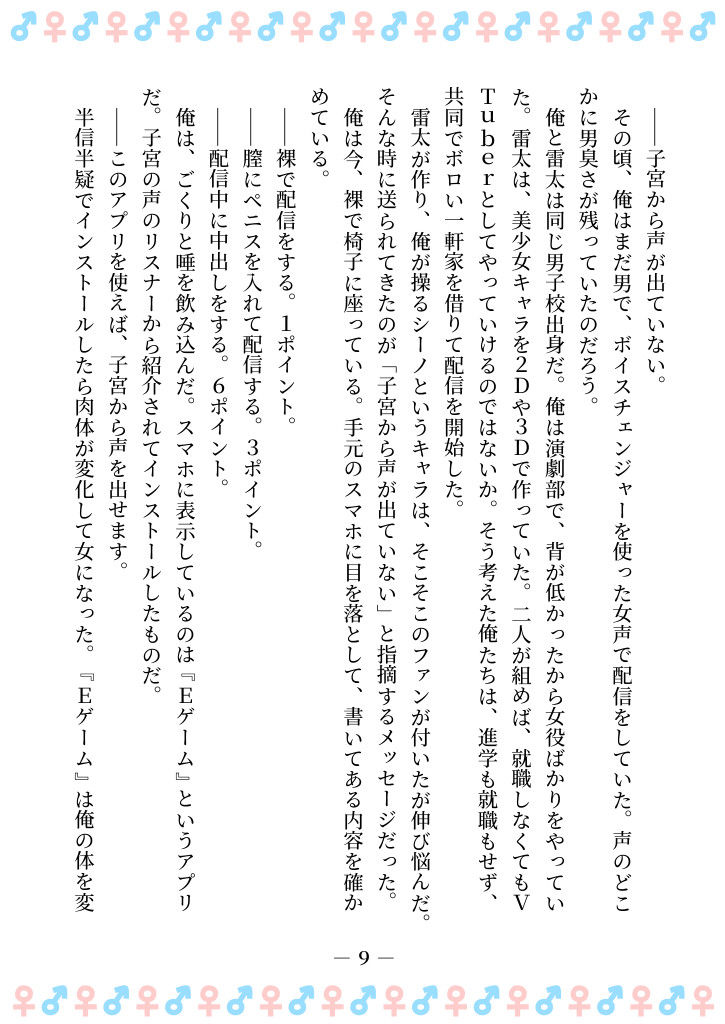 ――子宮から声が出ていない。
その頃、俺はまだ男で、ボイスチェンジャーを使った女声で配信をしていた。声のどこ
かに男臭さが残っていたのだろう。
俺と雷太は同じ男子校出身だ。俺は演劇部で、背が低かったから女役ばかりをやってい
た。雷太は、美少女キャラを２Ｄや３Ｄで作っていた。二人が組めば、就職しなくてもＶ
Ｔｕｂｅｒとしてやっていけるのではないか。そう考えた俺たちは、進学も就職もせず、
共同でボロい一軒家を借りて配信を開始した。
雷太が作り、俺が操るシーノというキャラは、そこそこのファンが付いたが伸び悩んだ。
そんな時に送られてきたのが「子宮から声が出ていない」と指摘するメッセージだった。
俺は今、裸で椅子に座っている。手元のスマホに目を落として、書いてある内容を確か
めている。
――裸で配信をする。１ポイント。
――膣にペニスを入れて配信する。３ポイント。
――配信中に中出しをする。６ポイント。
俺は、ごくりと唾を飲み込んだ。スマホに表示しているのは『Ｅゲーム』というアプリ
だ。子宮の声のリスナーから紹介されてインストールしたものだ。
――このアプリを使えば、子宮から声を出せます。
半信半疑でインストールしたら肉体が変化して女になった。『Ｅゲーム』は俺の体を変
― 9 ―